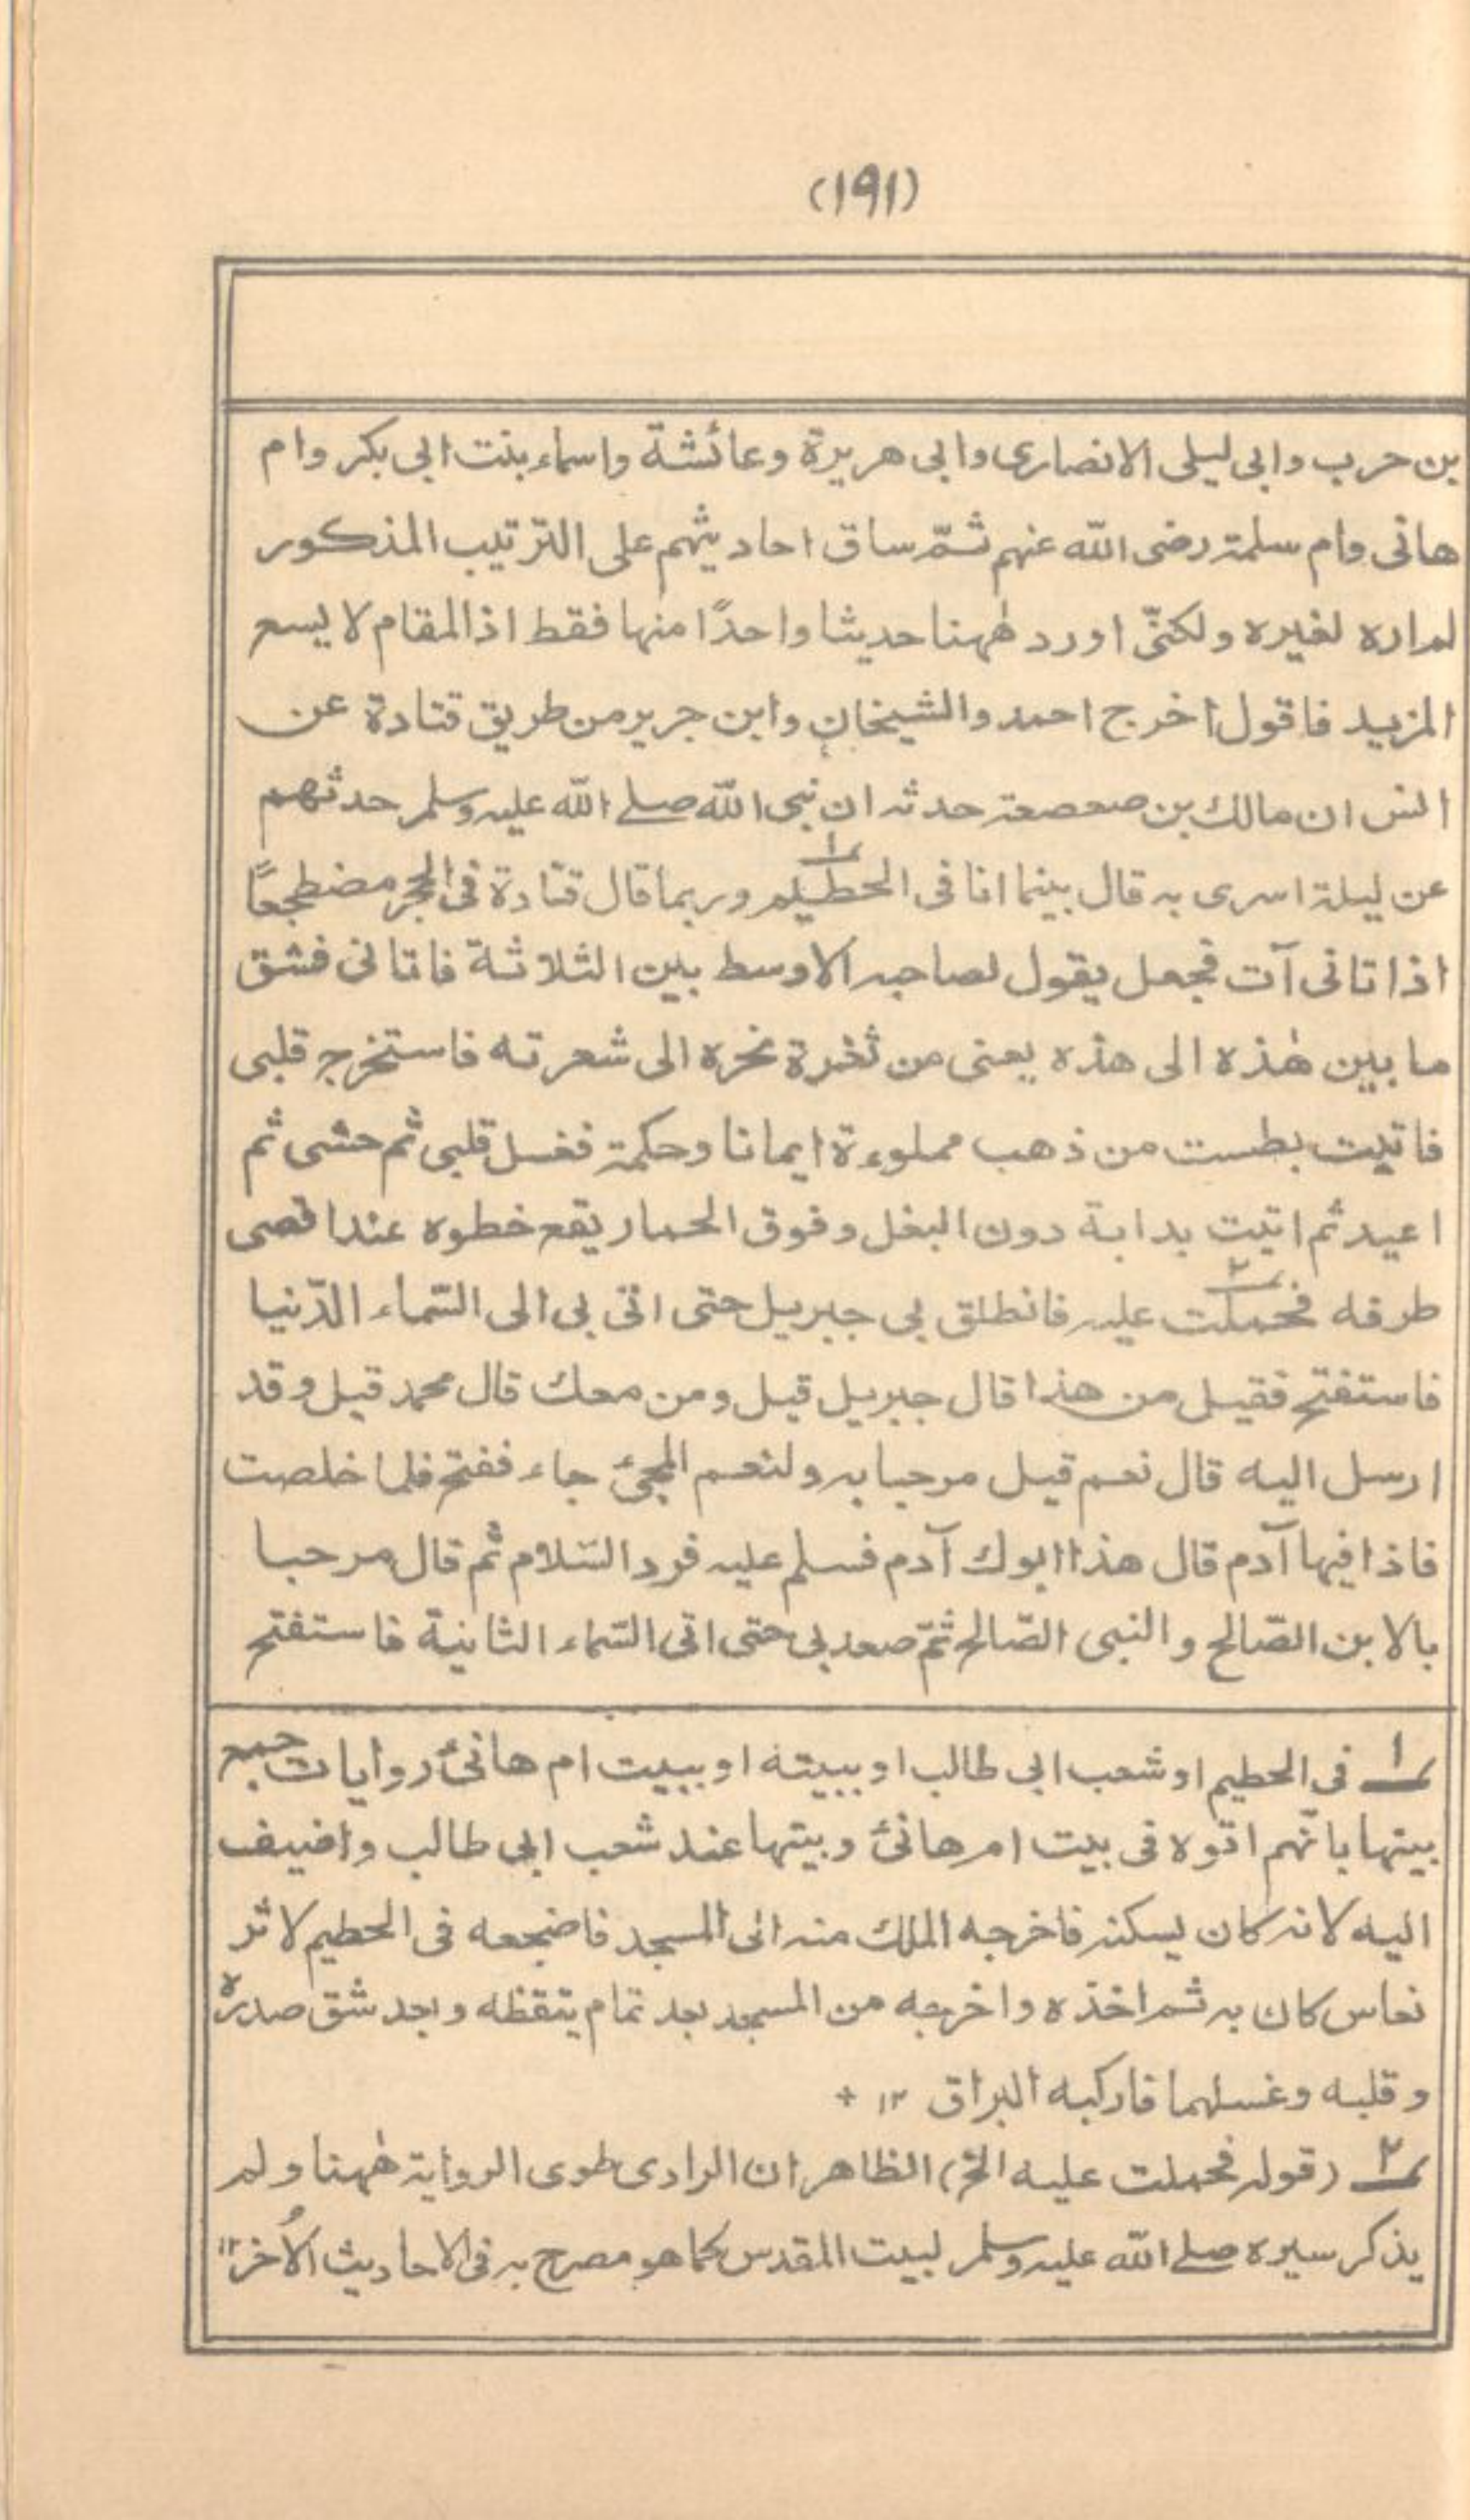 (١٩١)
بن حرب وابی لیلی الانصاری وابی هریرة وعائشة واسماء بنت ابی بکر وام
هانی وام سلمة رضی الله عنهم ثمّ ساق احادیثهم علی الترتیب المذکور
لغیره ولکنّی اورد هٰهنا حدیثا واحدًا منها فقط اذ المقام لا یسع
المزید فاقول اخرج احمد والشیخان وابن جریر من طریق قتادة عن
انس ان مالك بن صعصعة حدثه ان نبی الله صلے الله علیه وسلم حدثهم
عن لیلة اسری به قال بینما انا فی الحطیم ١ وربما قال قتادة فی الحجر مضطجعًا
اذ اتانی آت فجعل یقول لصاحبه الاوسط بین الثلاثة فاتانی فشق
ما بین هٰذه الی هذه یعنی من ثغرة نحره الی شعرته فاستخرج قلبی
فاتیت بطست من ذهب مملوءة ایمانا وحکمة فغسل قلبی ثم حشی ثم
اعید ثم اتیت بدابة دون البغل وفوق الحمار یقع خطوه عند اقصی
طرفه فحملت ٢ علیه فانطلق بی جبریل حتی اتی بی الی السّماء الدّنیا
فاستفتح فقیل من هذا قال جبریل قیل ومن معك قال محمد قیل وقد
ارسل الیه قال نعم قیل مرحبا به ولنعم المجئ جاء ففتح فلما خلصت
فاذا فیها آدم قال هذا ابوك آدم فسلم علیه فرد السّلام ثم قال مرحبا
بالابن الصّالح والنبی الصّالح ثمّ صعد بی حتی اتی السّماء الثانیة فاستفتح
١ فی الحطیم او شعب ابی طالب او ببیته او ببیت ام هانئ روایات جمع
بینها بانّهم اتوه فی بیت ام هانئ وبیتها عند شعب ابی طالب واضیف
الیه لانه کان یسکنه فاخرجه الملك منه الی المسجد فاضجعه فی الحطیم لاثر
نعاس کان به ثم اخذه واخرجه من المسجد بعد تمام یتقظه وبعد شق صدره
وقلبه وغسلهما فارکبه البراق ١٢ +
٢ (قوله فحملت علیه الخ) الظاهر ان الراوی طوی الروایة هٰهنا ولم
یذکر سیره صلے الله علیه وسلم لبیت المقدس کما هو مصرح به فی الاحادیث الاُخر ١٢